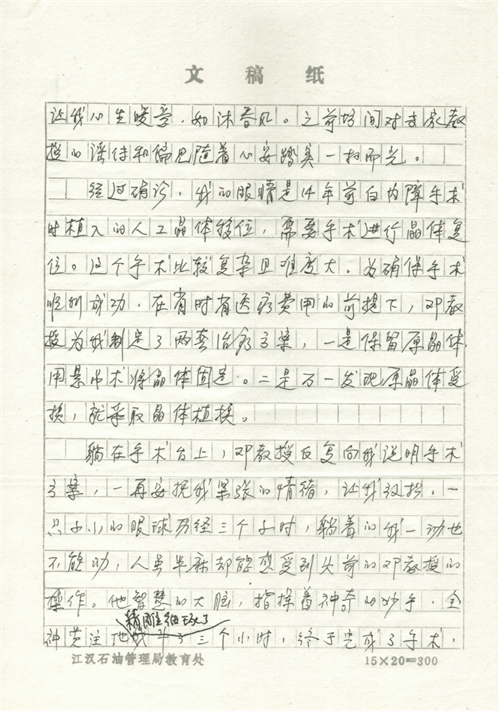 文稿纸
让我心生暖意，如沐春风。之前坊间对专家教
授的凌傲和偏见随着心安踏实一扫而光。
经过确诊，我的眼睛是14年前白内障手术
时植入的人工晶体移位，需要手术进行晶体复
位。这个手术比较复杂且难度大。为确保手术
顺利成功，在省时省医疗费用的前提下，邓教
授为我制定了两套治疗方案，一是保留原晶体，
用某术将晶体固定。二是万一发现原晶体受
损，就采取晶体植换。
躺在手术台上，邓教授反复向我说明手术
方案，一再安抚我紧张的情绪，让我放松，一
只小小的眼球历经三个小时，躺着的我一动也
不能动，人虽半麻却能感受到头前的邓教授的
操作。他智慧的大脑，指挥着神奇的妙手，全
精雕细琢了
神贯注地三个小时，终于完成了手术，
江汉石油管理局教育处
15×20=300